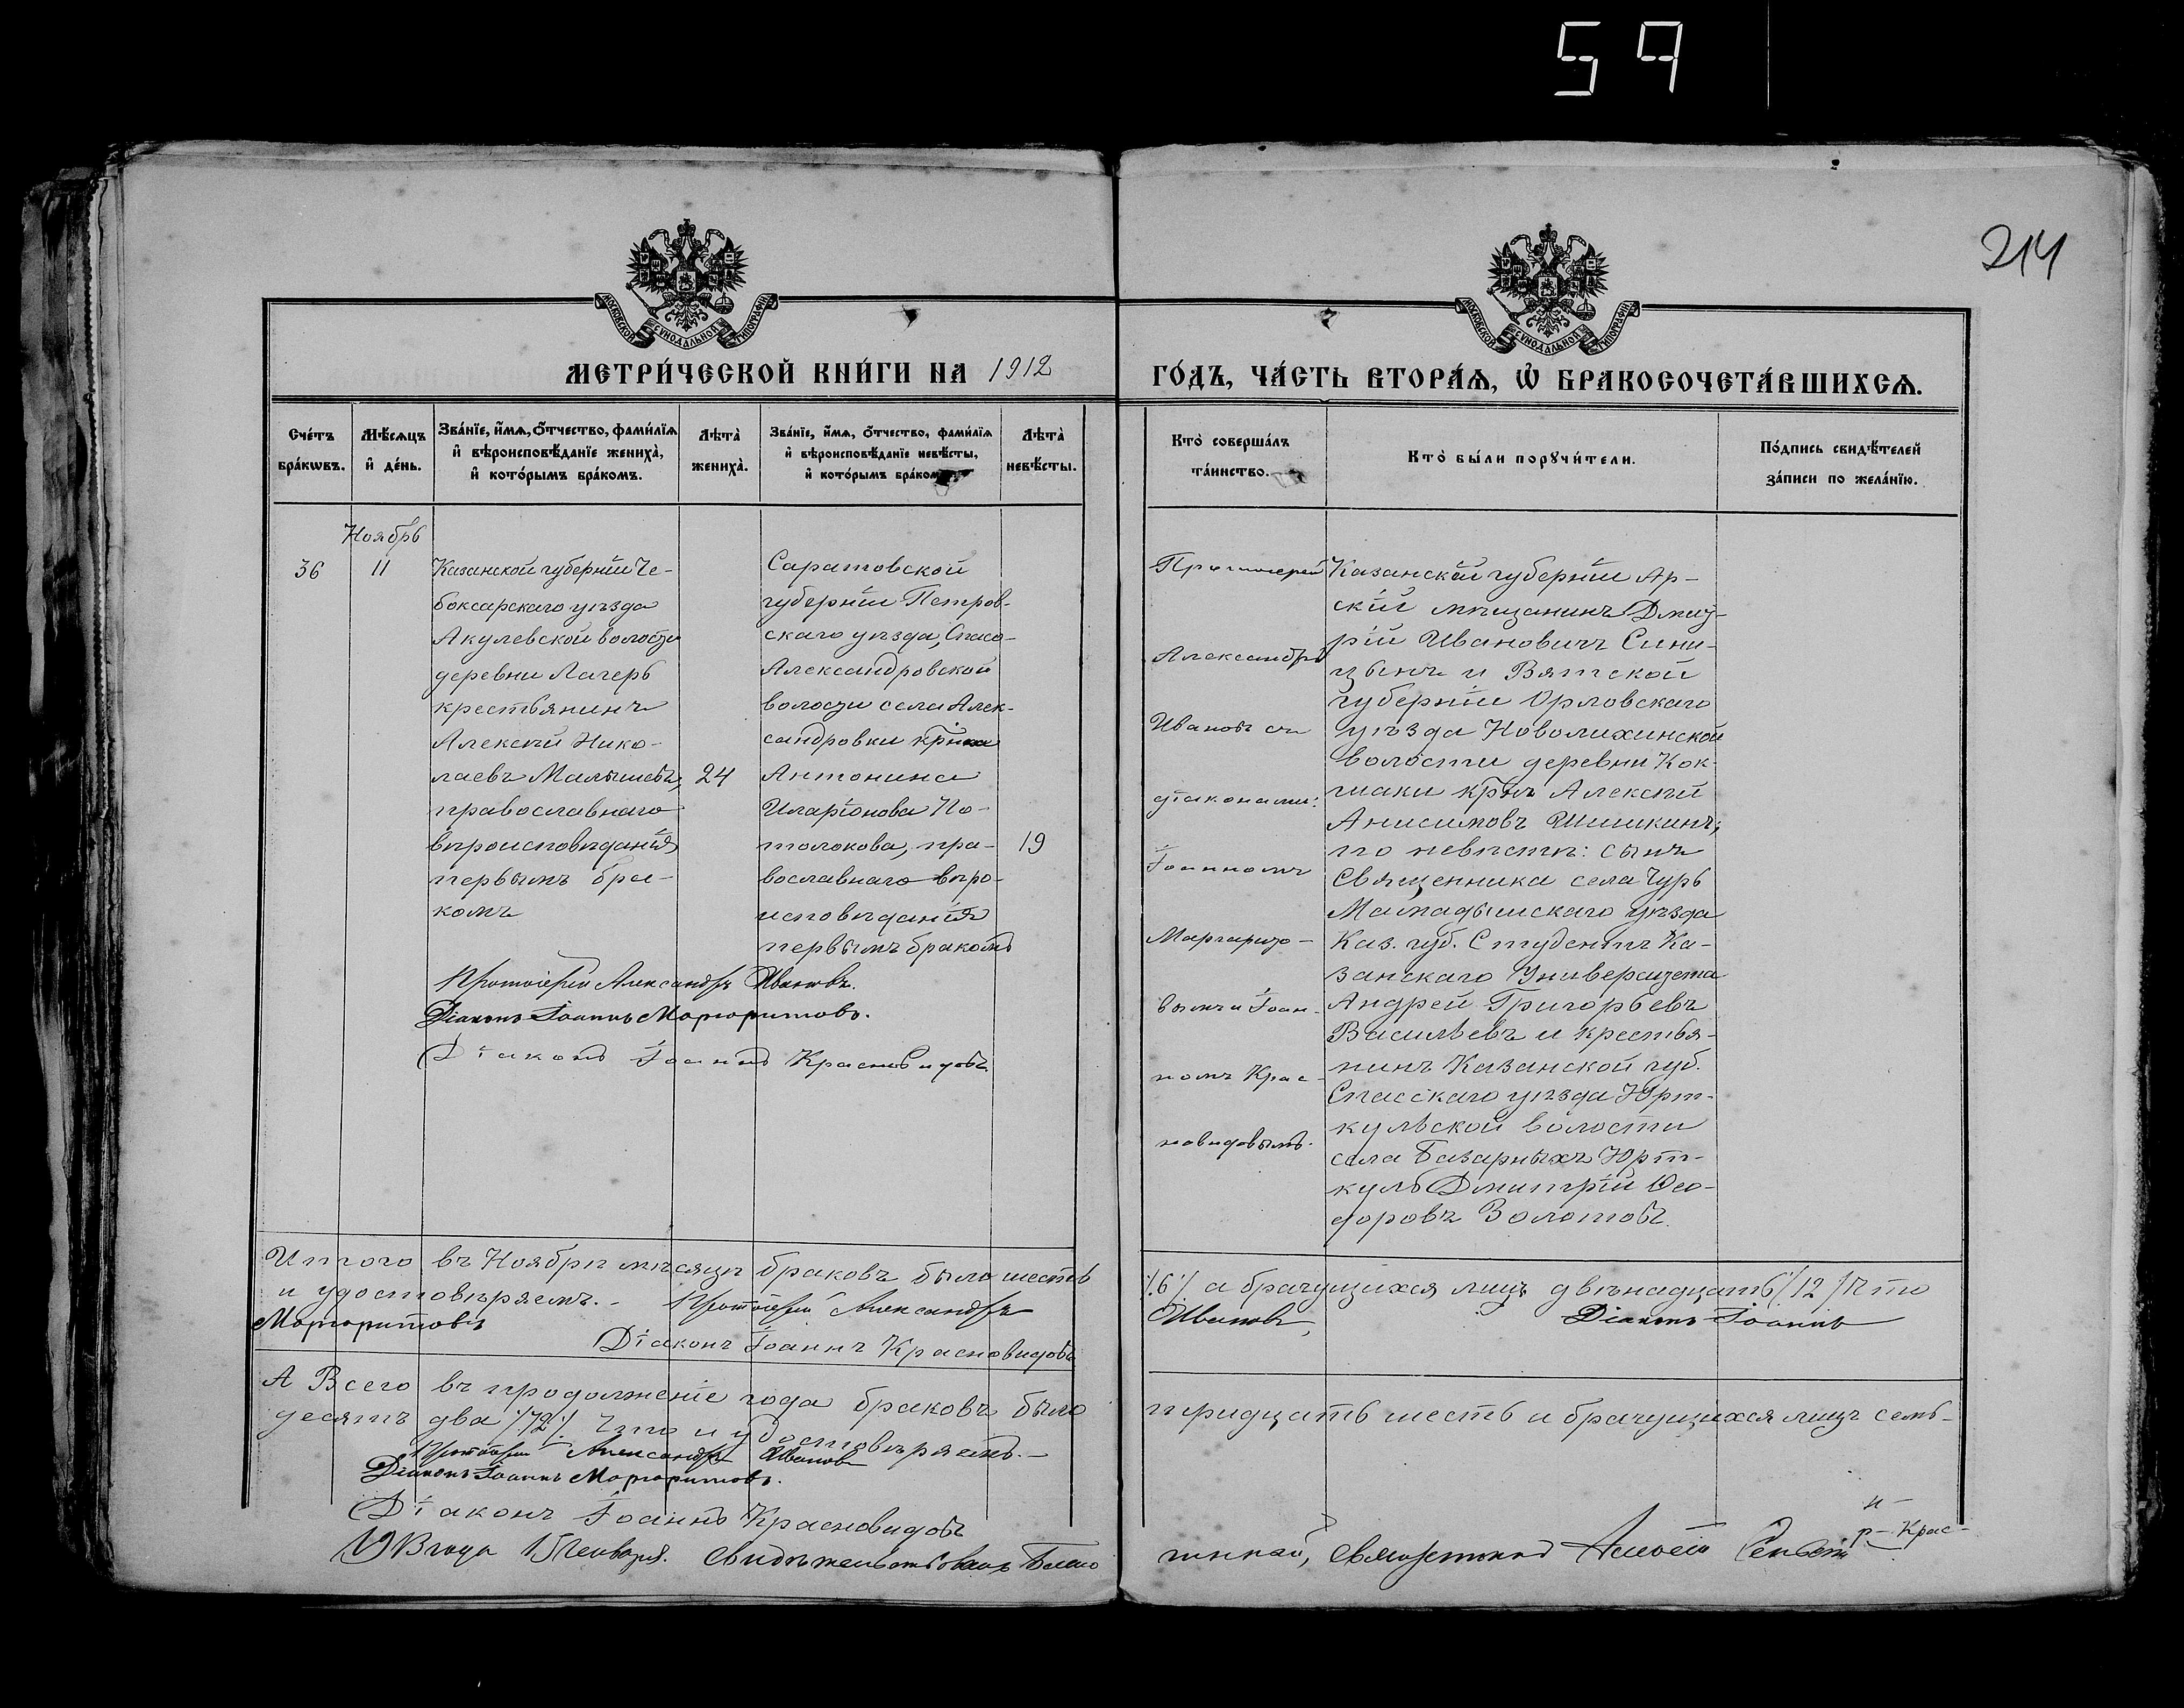 59
214
МОСКОВСКОЙ СѴНОДАЛЬНОЙ ТИПОГРАФІИ
МОСКОВСКОЙ СѴНОДАЛЬНОЙ ТИПОГРАФІИ
МЕТРИ́ЧЕСКОЙ КНИ́ГИ НА 1912
ГО́ДЪ, ЧА́СТЬ ВТОРА́Ѧ, Ѡ҆ БРАКОСОЧЕТА́ВШИХСѦ.
Сче́тъ
бра́кѡвъ.
Мѣ́сѧцъ
и҆ де́нь.
Зва́нїе, и҆́мѧ, ѻ҆́тчество, фами́лїѧ
и҆ вѣроисповѣ́данїе жениха̀,
и҆ кото́рымъ бра́комъ.
Лѣта̀
жениха̀.
Зва́нїе, и҆́мѧ, ѻ҆́тчество, фами́лїѧ
и҆ вѣроисповѣ́данїе невѣ́сты,
и҆ кото́рымъ бра́комъ.
Лѣта̀
невѣ́сты.
Кто̀ соверша́лъ
та́инство.
Кто̀ бы́ли порꙋчи́тели.
По́дпись свидѣ́телей
за́писи по жела́нїю.
Ноябрь
36
11
Казанской губерніи Че-
боксарскаго уѣзда
Акулевской волости
деревни Лагерь
крестьянинъ
Алексѣй Нико-
лаевъ Малышевъ,
православнаго
вѣроисповѣданія,
первымъ бра-
комъ
24
Саратовской
губерніи Петров-
скаго уѣзда, Спасо-
Александровской
волости села Алек-
сандровки кр҃нка
Антонина
Иларіонова По-
толокова, пра-
вославнаго вѣро-
исповѣданія
первымъ бракомъ
19
Протоіерей Александръ Ивановъ.
Діаконъ Іоаннъ Маргаритовъ.
Діаконъ Іоаннъ Красновидовъ
Протоіерей
Александръ
Ивановъ съ
діаконами:
Іоанномъ
Маргарито-
вымъ и Іоан-
номъ Крас-
новидовымъ.
Казанской губерніи Ар-
скій мѣщанинъ Дмит-
рій Ивановичъ Сини-
цынъ и Вятской
губерніи Орловскаго
уѣзда Новолихинской
волости деревни Кок-
шаки кр҃нъ Алексѣй
Анисимовъ Шишкинъ;
по невѣстѣ: сынъ
Священника села Чурь
Мамадышскаго уѣзда
Каз. губ. Студентъ Ка-
занскаго Университета
Андрей Григорьевъ
Васильевъ и крестья-
нинъ Казанской губ.
Спасскаго уѣзда Юрт-
кульской волости
села Базарныхъ Юрт-
куль Дмитрій Ѳео-
доровъ Золотовъ.
Итого въ Ноябрѣ мѣсяцѣ браковъ было шесть
/6/. а брачущихся лицъ двѣнадцать /12/ что
и удостовѣряемъ. - Протоіерей Александръ
Ивановъ, Діаконъ Іоаннъ
Маргаритовъ
Діаконъ Іоаннъ Красновидовъ
А Всего въ продолженіе года браковъ было
тридцать шесть а брачущихся лицъ семь-
десятъ два /72/. Что и удостовѣряемъ. -
Протоіерей Александръ Ивановъ
Діаконъ Іоаннъ Маргаритовъ.
Діаконъ Іоаннъ Красновидовъ
1913 года 15 Генваря. свидѣтельствовалъ